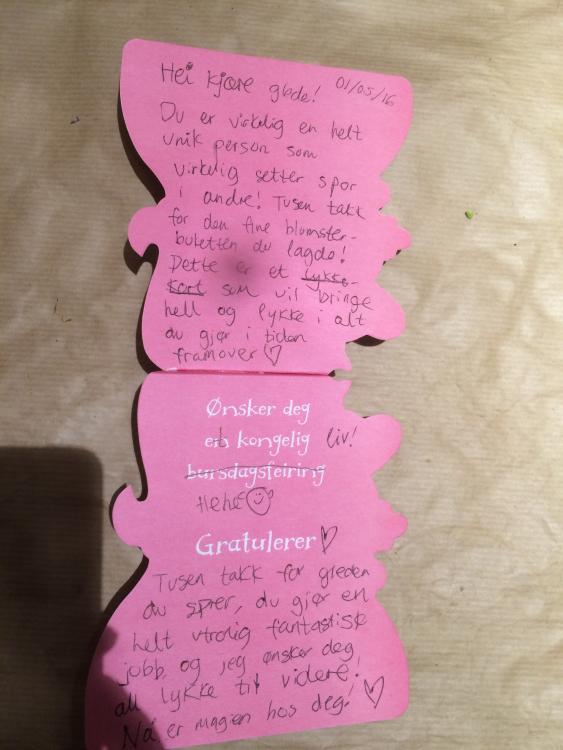 Hei kjære glede! 01/05/16
Du er virkelig en helt
unik person som
virkelig setter spor
i andre! Tusen takk
for den fine blomster-
buketten du lagde!
Dette er et lykke-
kort som vil bringe
hell og lykke i alt
du gjør i tiden
framover ♡
Ønsker deg
et kongelig liv!
bursdagsfeiring
Hehe ☺
Gratulerer ♡
Tusen takk for gleden
du sprer, du gjør en
helt utrolig fantastisk
jobb og jeg ønsker deg
all lykke til videre!
Nå er magien hos deg! ♡